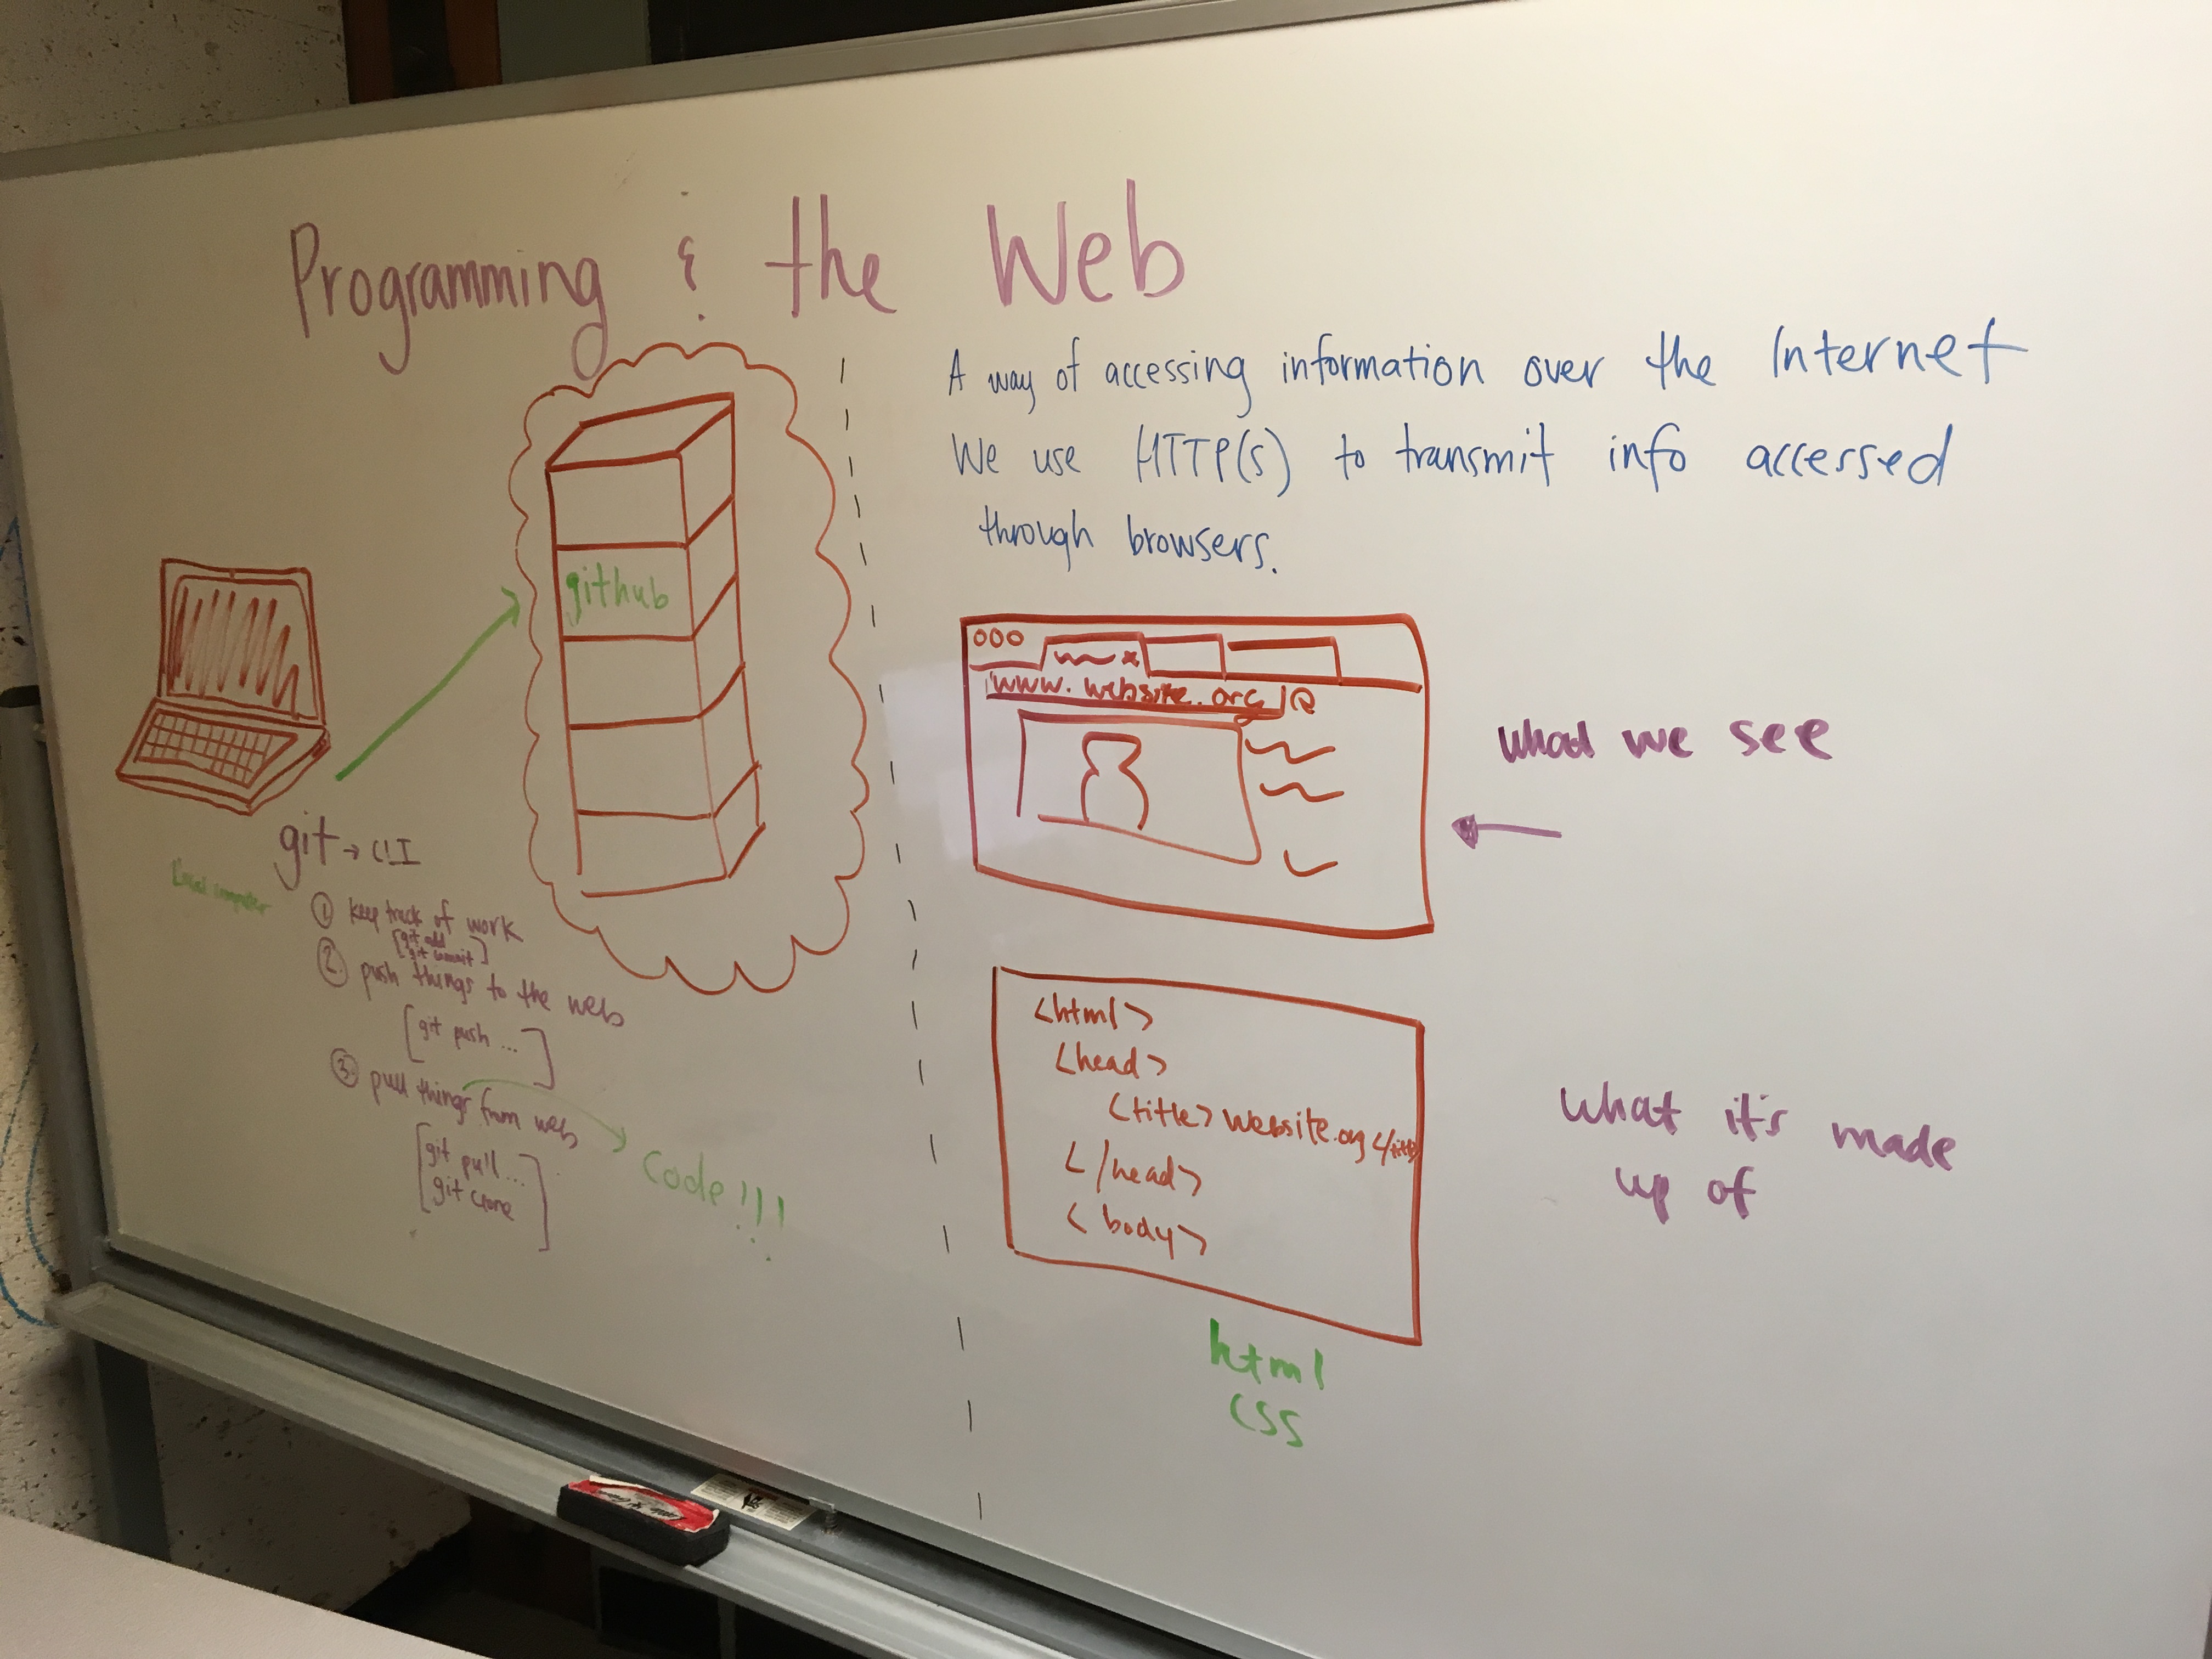 Programming & the Web
github
git → CLI
Local computer
① keep track of work
[git add
git commit]
② push things to the web
[git push ...]
③ pull things from web
[git pull...
git clone]
Code!!!
A way of accessing information over the Internet
We use HTTP(s) to transmit info accessed
through browsers.
www.website.org
what we see
<html>
<head>
<title> website.org </title>
</head>
<body>
what it's made
up of
html
css